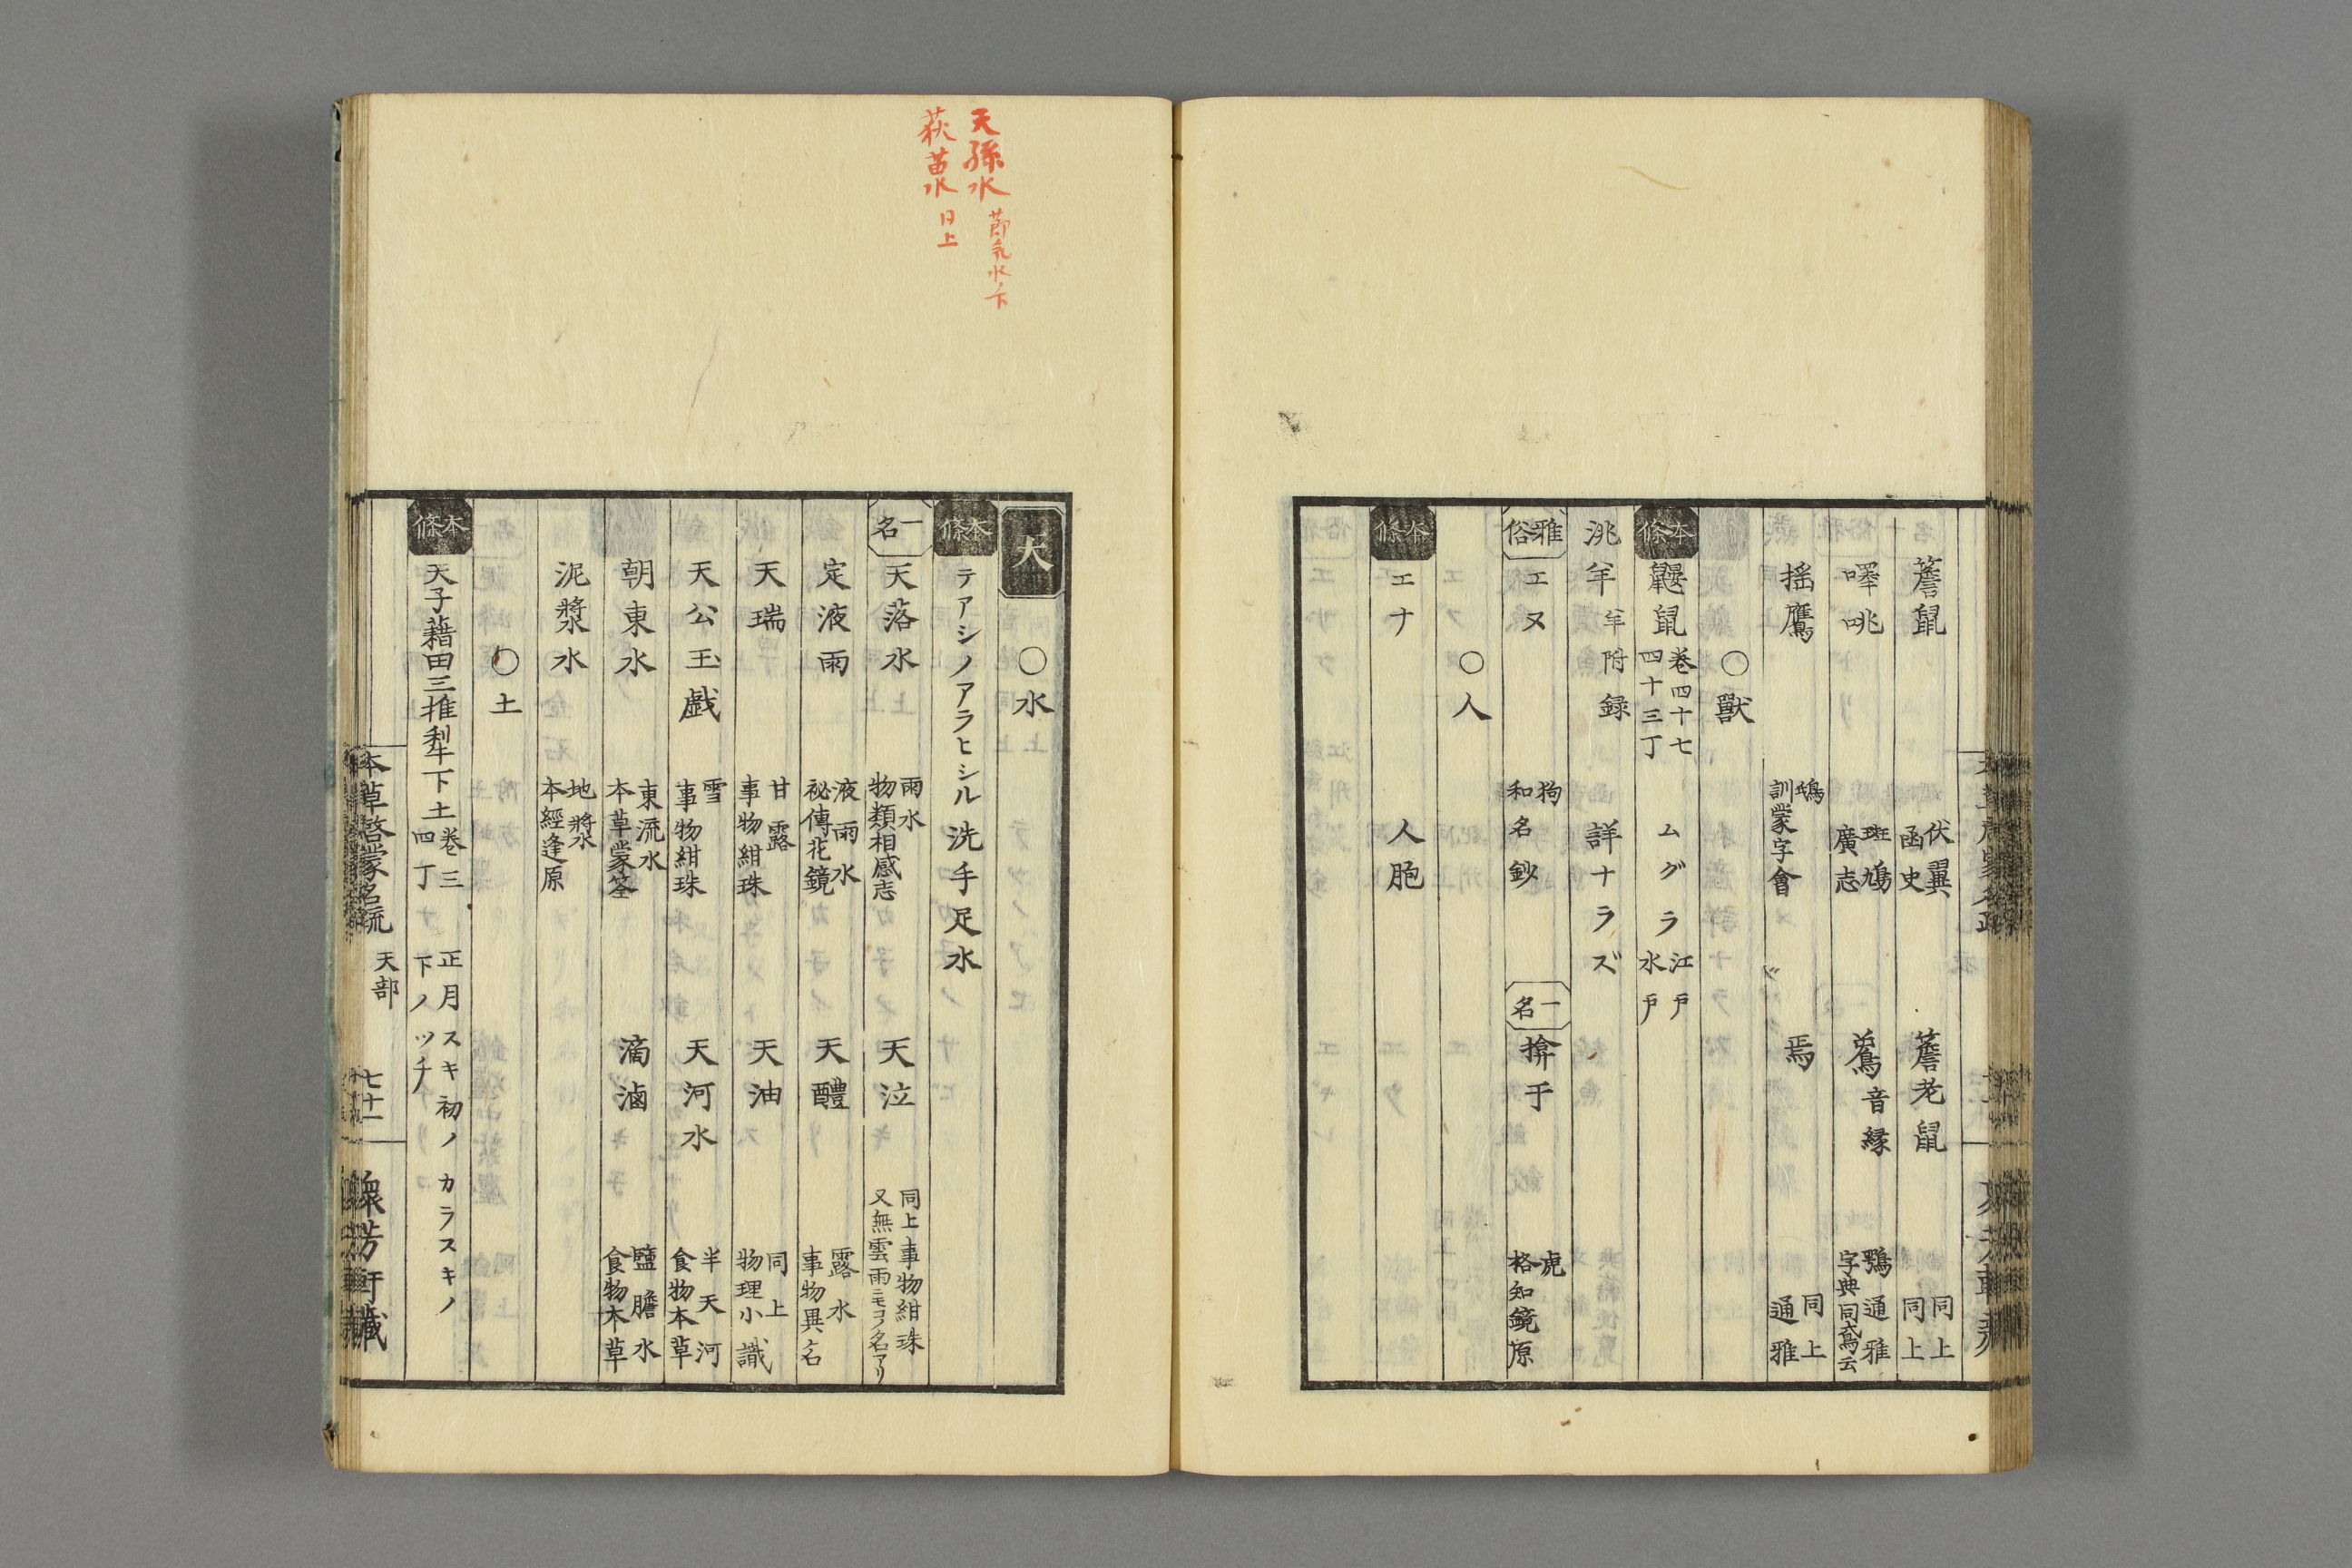 簷鼠 伏翼 函史 簷老鼠 同上 同上
㖁咷 斑鳩 廣志 音縁 鶚 通雅 字典同鳶云
揺鷹 鴟 訓蒙字會 焉 同上 通雅
○獸
本條 鼴鼠 巻四十七 四十三丁 ムグラ 江戸 水戸
洮羊 羊附録 詳ナラズ
雅俗 エヌ 狗 和名鈔 一名 揜于 虎 格知鏡原
○人
本條 エナ 人胞
天孫水 節氣水ノ下
荻苗水 日上
天
○水
本條 テアシノアラヒシル 洗手足水
一名 天落水 雨水 物類相感志 天泣 同上事物紺珠 又無雲雨ニモコノ名アリ
定液雨 液雨水 祕傳花鏡 天醴 露水 事物異名
天瑞 甘露 事物紺珠 天油 同上 物理小識
天公玉戯 雪 事物紺珠 天河水 半天河 食物本草
朝東水 東流水 本草蒙筌 滴滷 鹽膽水 食物本草
泥漿水 地漿水 本經逢原
○土
本條 天子藉田三推犁下土 巻三 四丁 正月スキ初ノカラスキノ 下ノツチ
本草啓蒙名疏 天部 七十一 衆芳軒藏